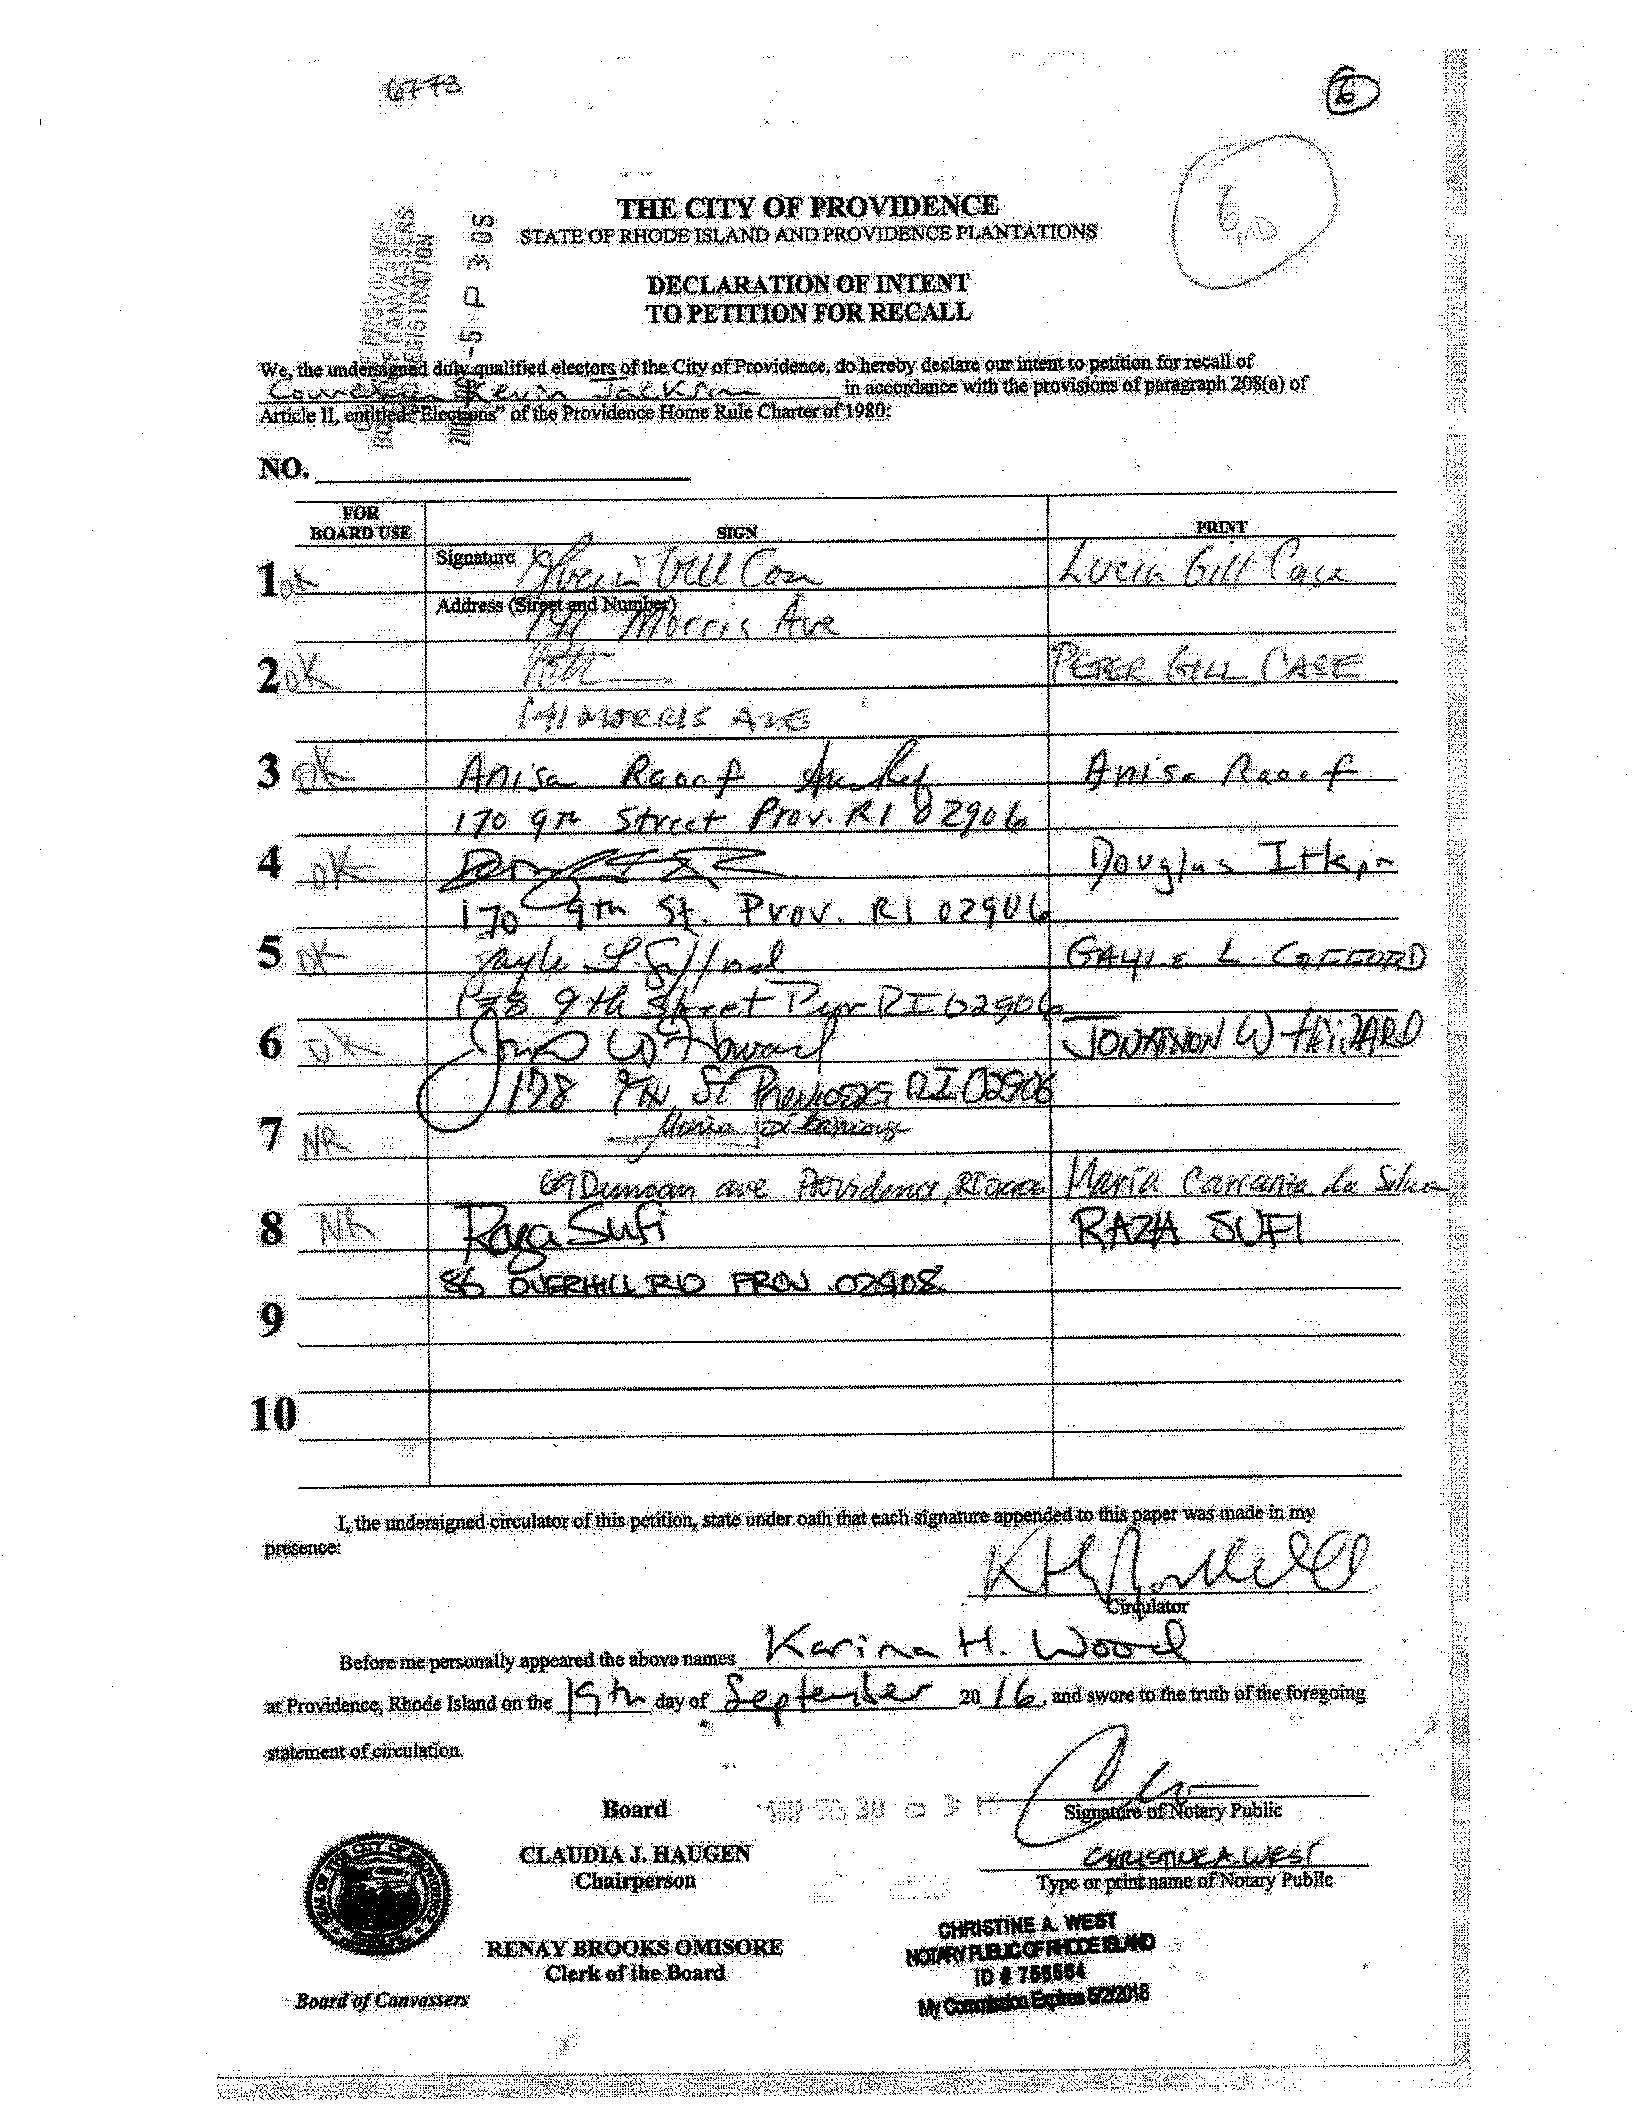 6773
6
6
THE CITY OF PROVIDENCE
STATE OF RHODE ISLAND AND PROVIDENCE PLANTATIONS
DECLARATION OF INTENT
TO PETITION FOR RECALL
-5 P 3:05
We, the undersigned duly qualified electors of the City of Providence, do hereby declare our intent to petition for recall of
Kevin Jackson in accordance with the provisions of paragraph 208(a) of
Article II, entitled "Elections" of the Providence Home Rule Charter of 1980:
NO.
FOR
BOARD USE SIGN PRINT
1 OK Signature Gill Case Lucia Gill Case
Address (Street and Number)
141 Morris Ave
2 OK PETER GILL CASE
141 MORRIS AVE
3 OK Anisa Raoof Anisa Raoof
170 9th Street Prov. RI 02906
4 OK Douglas Itkin
170 9th St. Prov. RI 02906
5 OK Gayle L. Gifford GAYLE L. GIFFORD
178 9th Street Prov RI 02906
6 OK Jon W Howard JONATHON W HOWARD
178 9TH St Providence RI 02906
7 NR
69 Duncan ave Providence, Maria Carcamo da Silva
8 NR Raza Sufi RAZA SUFI
86 OVERHILL RD PROV 02908
9
10
I, the undersigned circulator of this petition, state under oath that each signature appended to this paper was made in my
presence:
Circulator
Before me personally appeared the above names Karina H. Wood
at Providence, Rhode Island on the 19th day of September 2016, and swore to the truth of the foregoing
statement of circulation.
Board
Signature of Notary Public
CLAUDIA J. HAUGEN
Chairperson
CHRISTINE A. WEST
Type or print name of Notary Public
RENAY BROOKS OMISORE
Clerk of the Board
Board of Canvassers
CHRISTINE A. WEST
NOTARY PUBLIC OF RHODE ISLAND
ID # 756564
My Commission Expires 5/2/2018